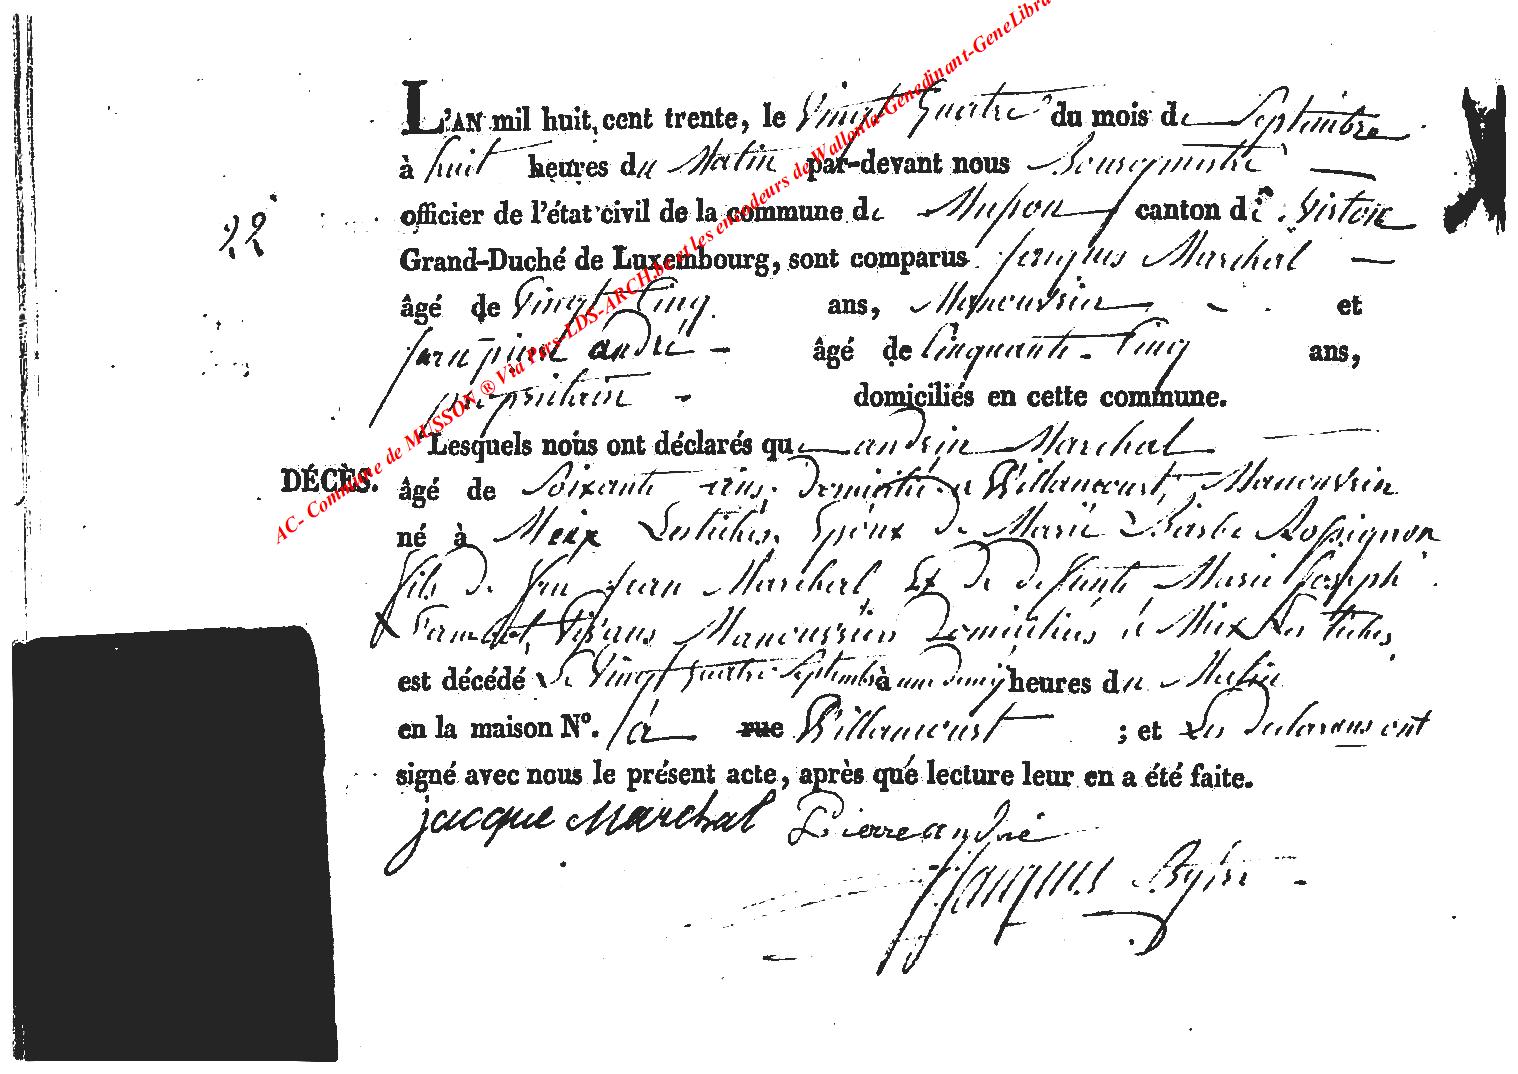 L'AN mil huit cent trente, le Vingt Quatre du mois de Septembre
à huit heures du Matin par-devant nous Bourgmestre
22
officier de l'état civil de la commune de Musson canton de Virton
Grand-Duché de Luxembourg, sont comparus Jacques Marchal
âgé de Vingt Cinq ans, Manouvrier et
Jean pierre andré âgé de Cinquante Cinq ans,
propriétaire domiciliés en cette commune.
Lesquels nous ont déclarés que andrien Marchal
DÉCÈS.
âgé de Soixante ans, Domicilié a Willancourt, Manouvrier
né à Meix Les tiches, Epoux de Marie Barbe Rossignon
fils de feu Jean Marchal Et de defunte Marie Joseph
Vivans Manouvriers Domiciliés à Meix Les tiches,
est décédé le Vingt quatre Septembre à une demy heures du Matin
en la maison N°. à rue Willancourt ; et Les Declarans ont
signé avec nous le présent acte, après que lecture leur en a été faite.
jacque Marchal Pierre andré
Jacques
AC- Commune de MUSSON ® Via Pers-LDS-ARCH.be et les encodeurs de Wallonia-Genedinant-GeneLibra